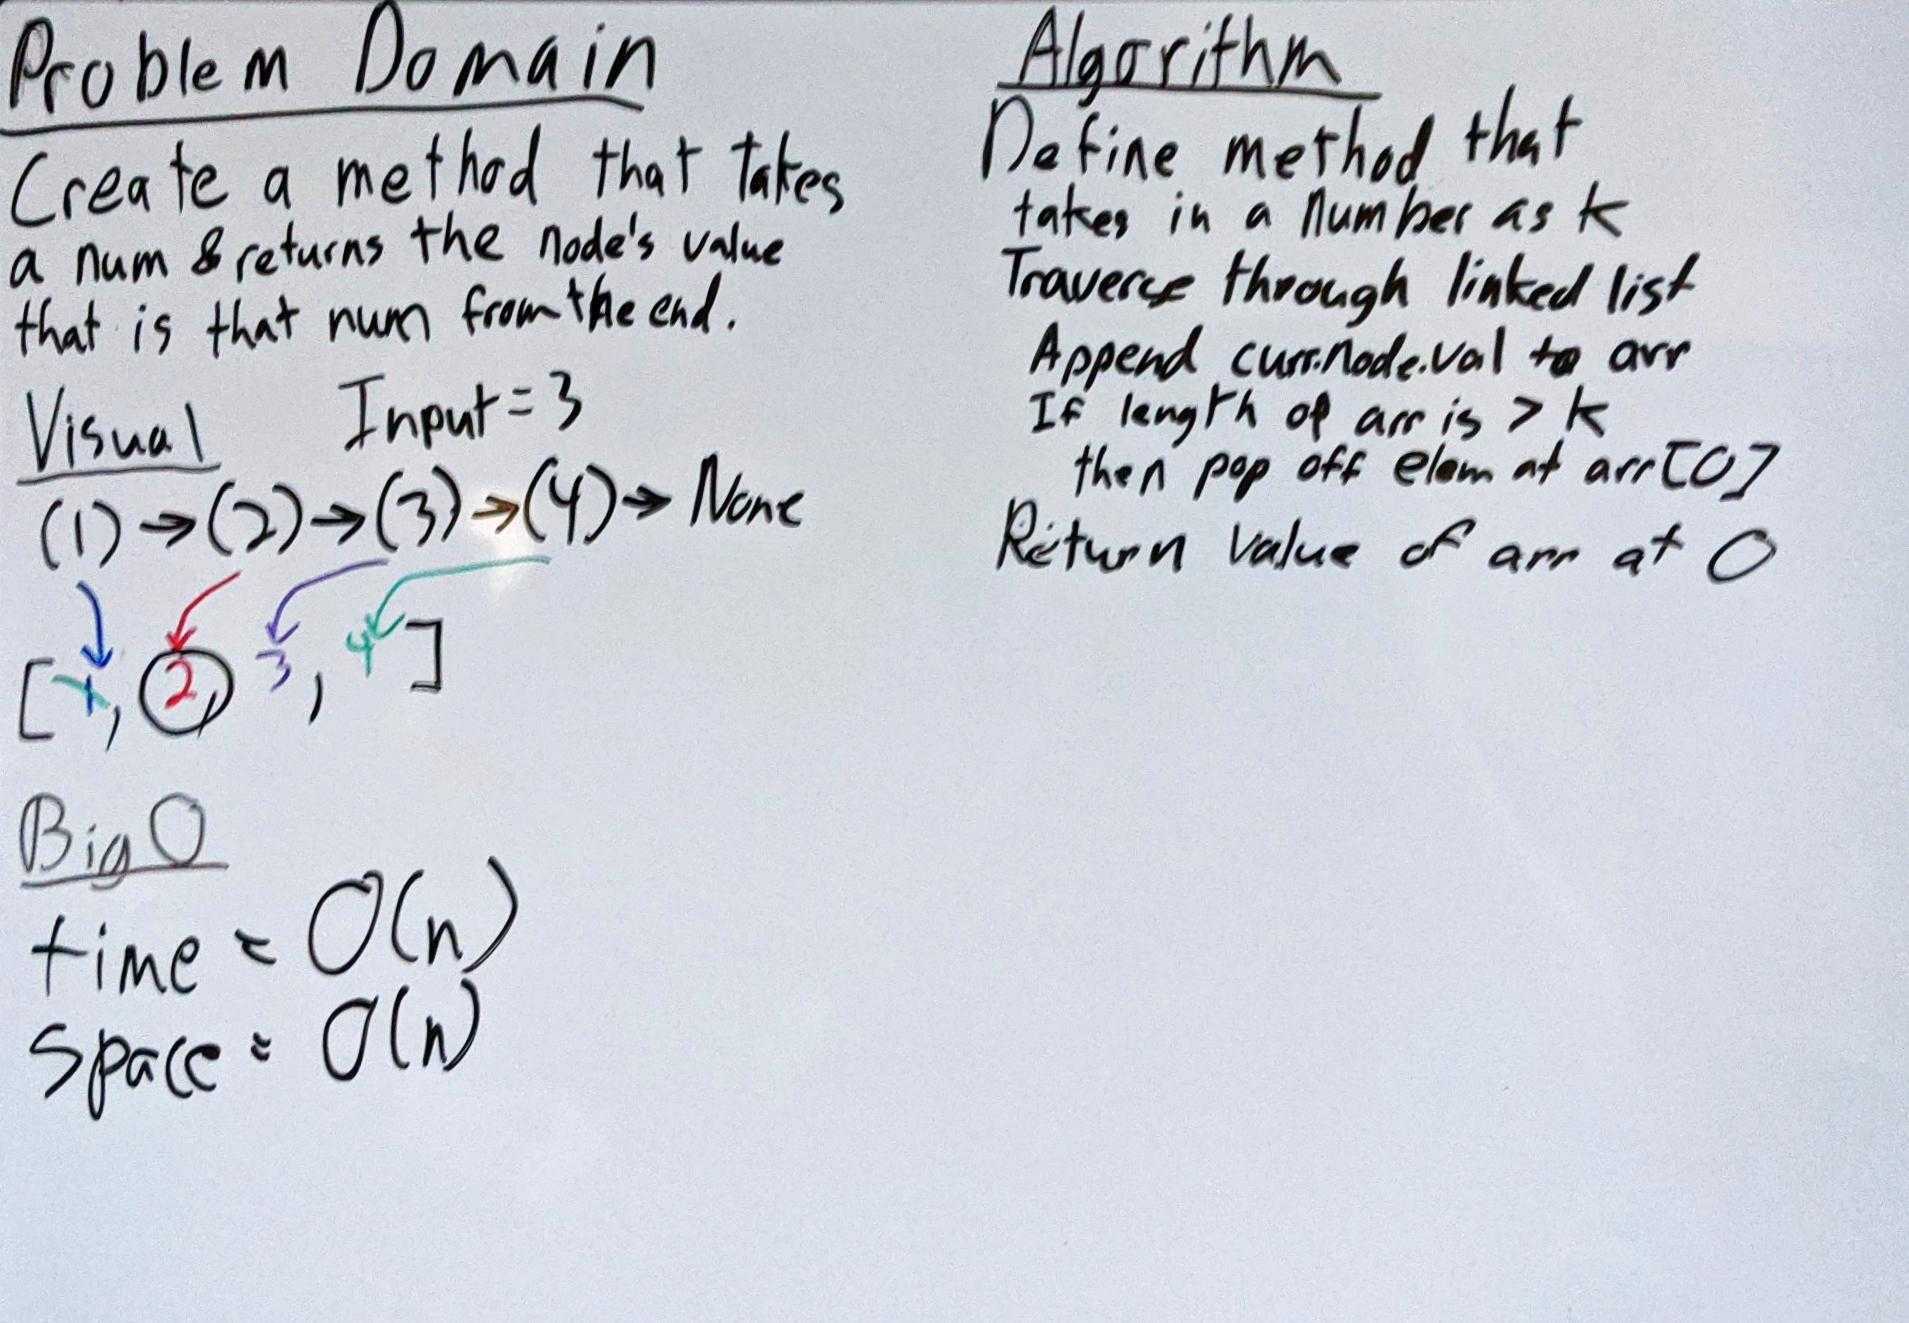 Problem Domain
Create a method that takes
a num & returns the node's value
that is that num from the end.
Visual Input = 3
(1) → (2) → (3) → (4) → None
[1, 2, 3, 4]
Big O
time = O(n)
space = O(n)
Algorithm
Define method that
takes in a number as k
Traverse through linked list
Append curr.node.val to arr
If length of arr is > k
then pop off elem at arr[0]
Return value of arr at 0